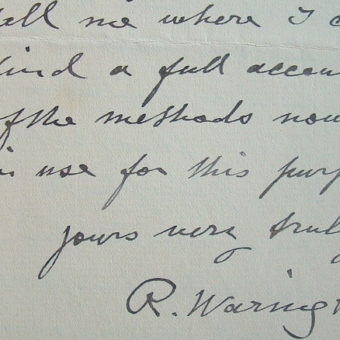 tell me where I c
find a full accoun
of the methods now
in use for this purp
yours very truly
R. Waringt